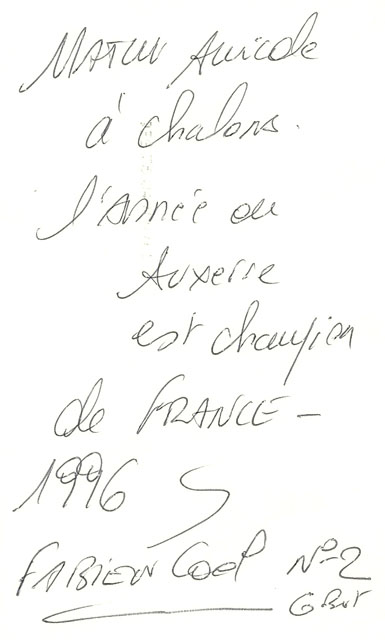 Match Amicale
à Chalons.
l'Année ou
Auxerre
est champion
de FRANCE -
1996
FABIEN COOL N°2